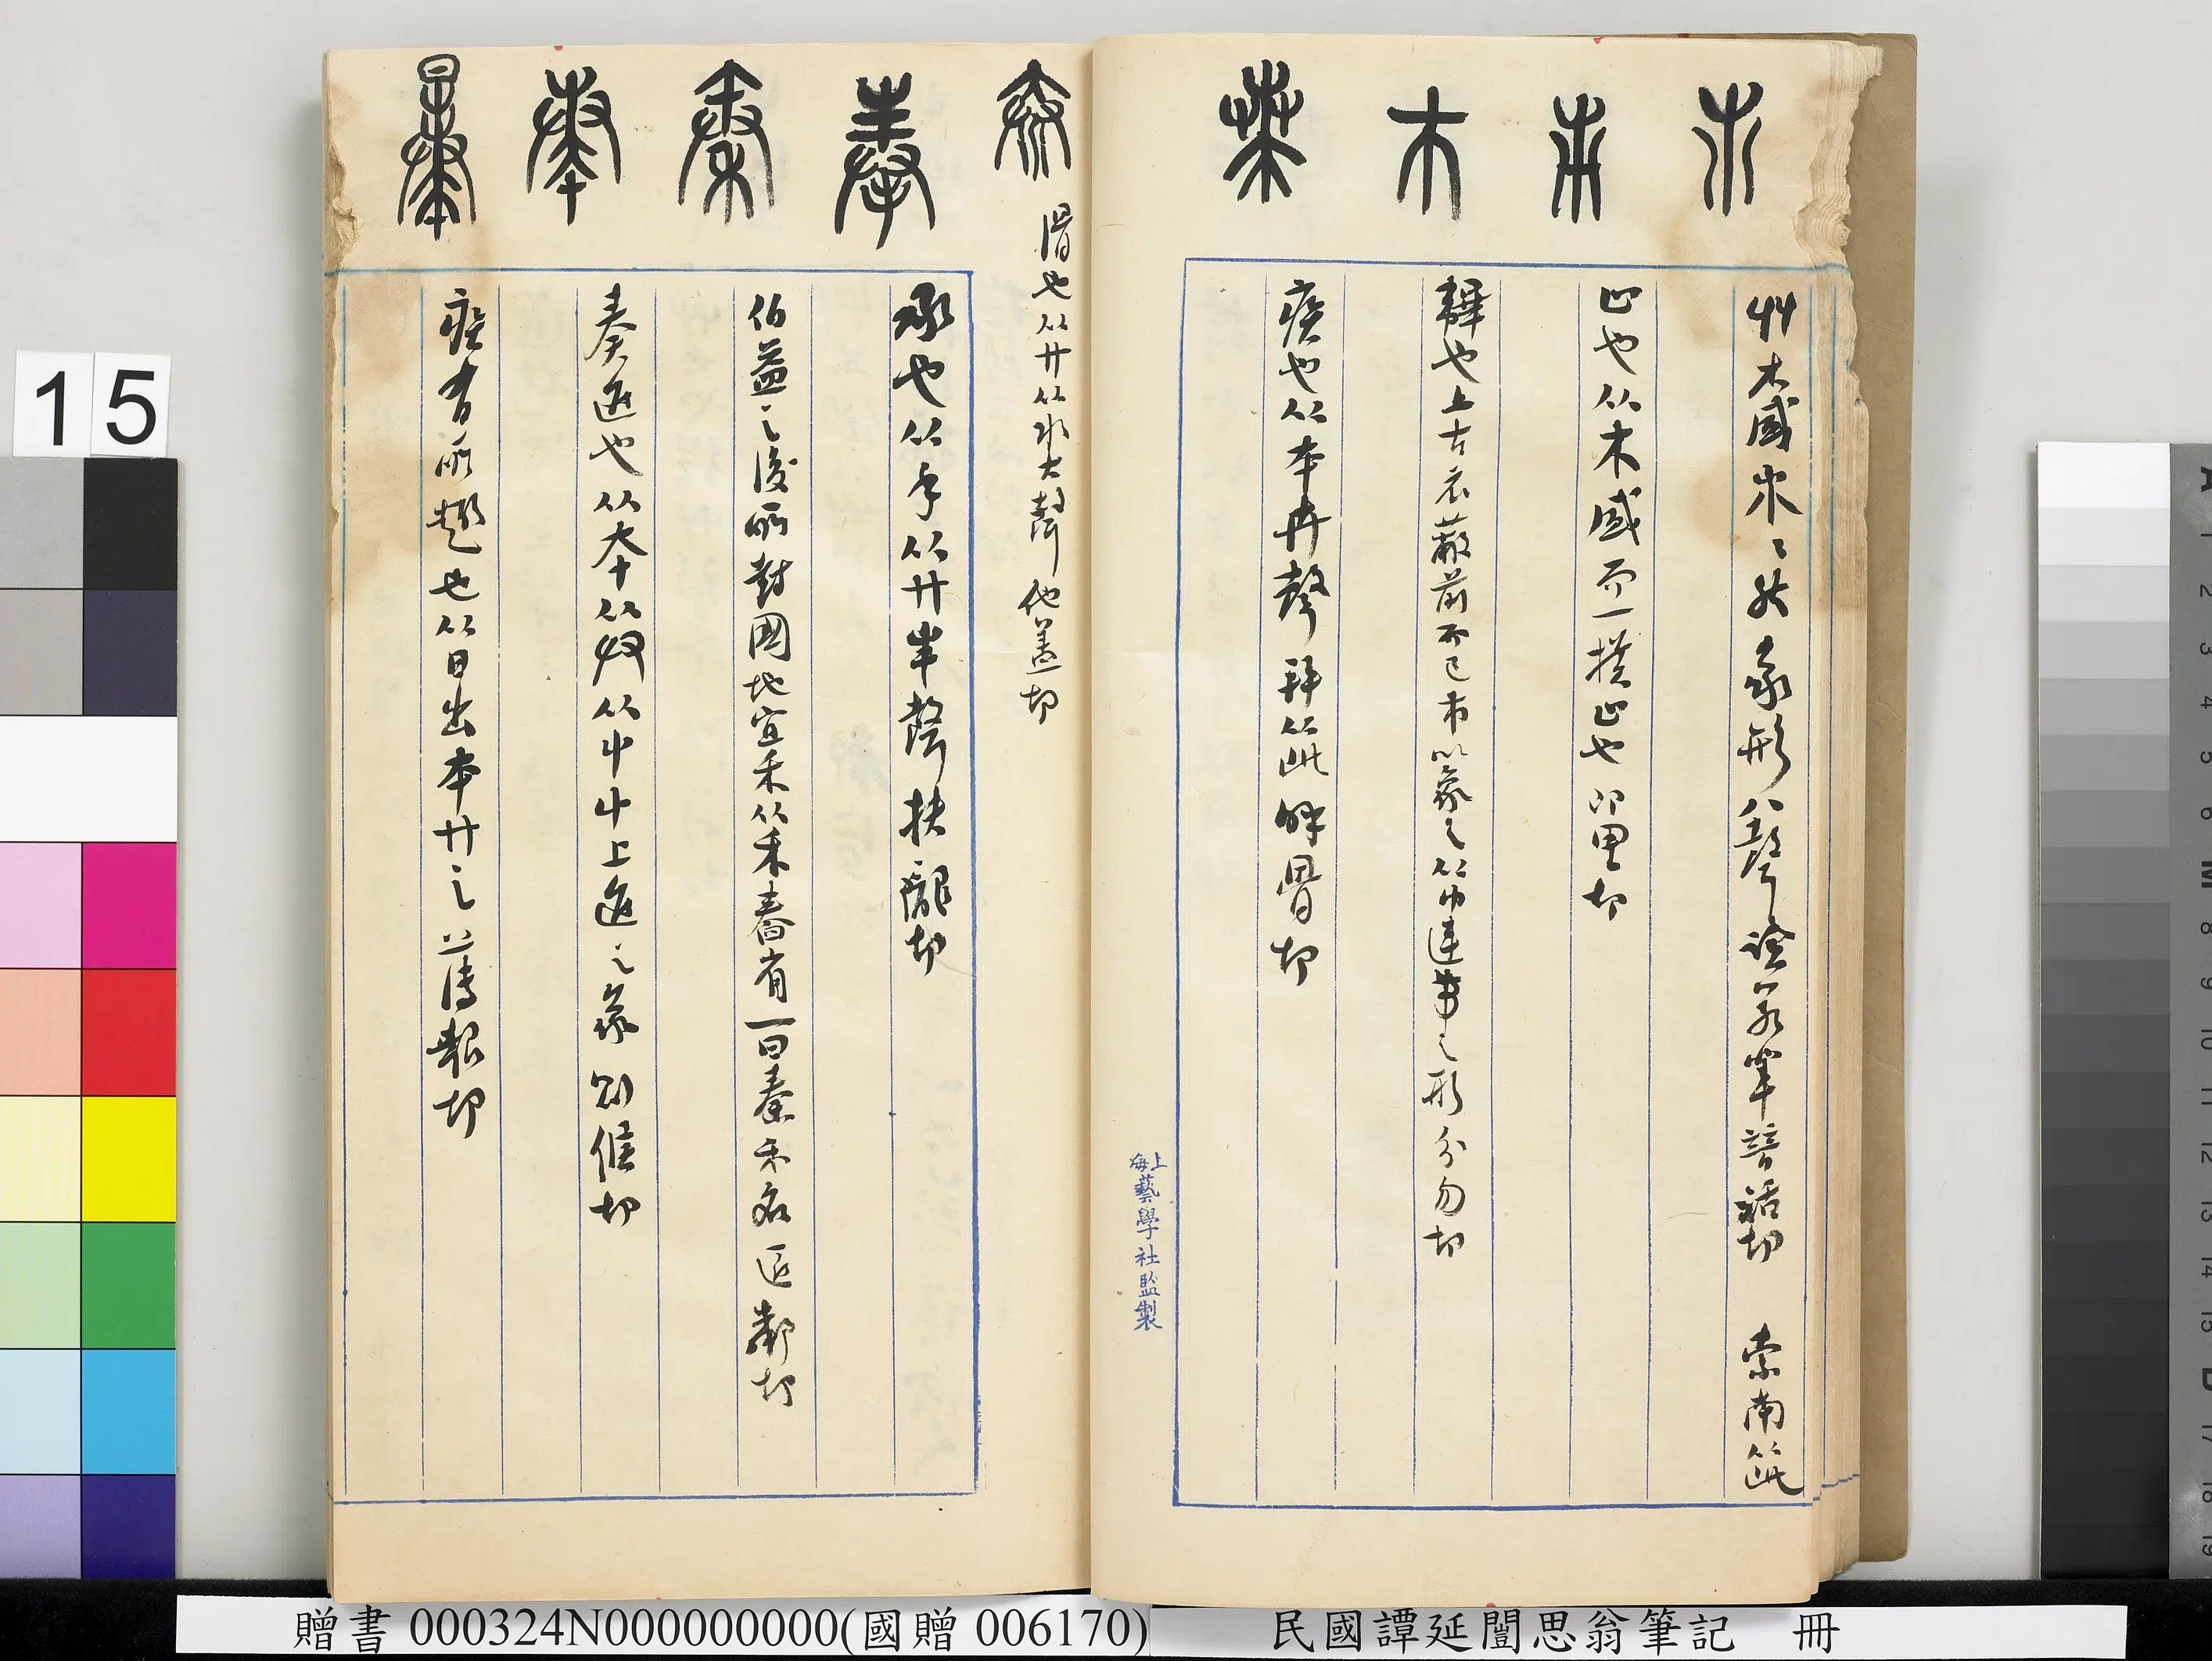 𣎵 艸木盛𣎵〻然象形八聲讀若輩普活切 索南从此
𠂔 止也从木盛而一橫止也 即里切
市 韠也上古衣蔽前而已市以象之从巾連帶之形 分勿切
𠦪 疾也从夲卉聲 拜从此 呼骨切
上海藝學社監製
泰 滑也从廾从水大聲 他蓋切
奉 承也从手从廾丰聲 扶隴切
秦 伯益之後所封國地宜禾从禾舂省一曰秦禾名 匠鄰切
奏 奏進也从夲从𠬞从屮屮上進之義 則候切
暴 疾有所趣也从日出夲廾之 薄報切
15
贈書 000324N000000000(國贈 006170)
民國譚延闓思翁筆記 冊